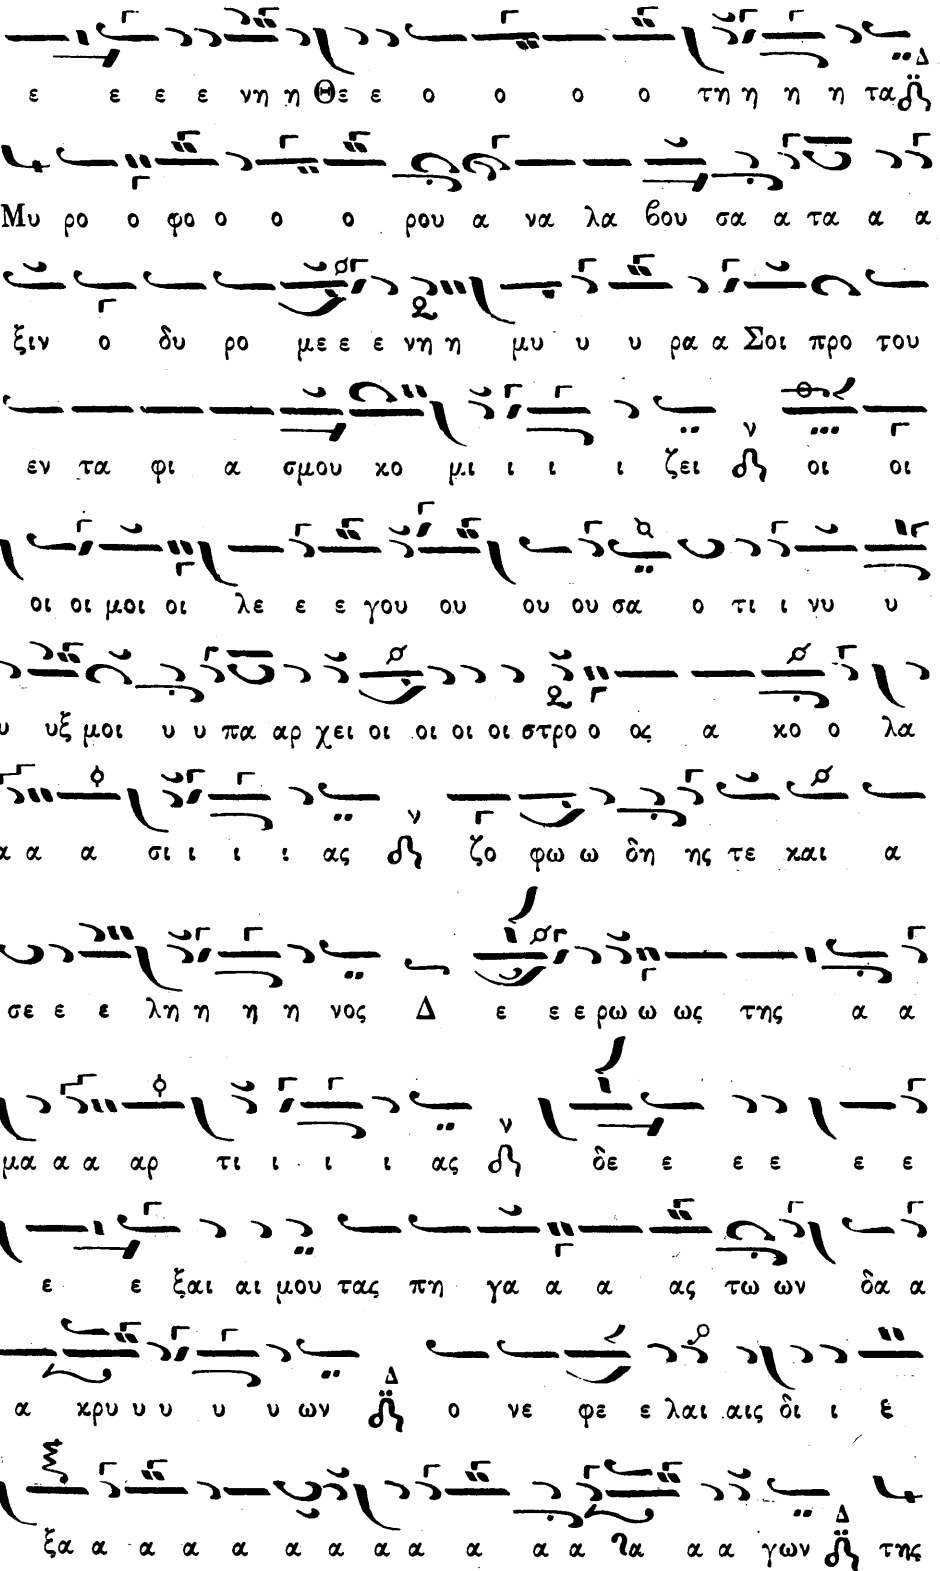 ε ε ε ε νη η Θε ε ο ο ο ο τη η η η τα
Μυ ρο ο φο ο ο ο ρου α να λα βου σα α τα α α
ξιν ο δυ ρο με ε ε νη η μυ υ υ ρα α Σοι προ του
εν τα φι α σμου κο μι ι ι ι ζει οι οι
οι οι μοι οι λε ε ε γου ου ου ου σα ο τι ι νυ υ
υ υξ μοι υ υ πα αρ χει οι οι οι οι στρο ο ος α κο ο λα
α α α σι ι ι ι ας ζο φω ω δη ης τε και α
σε ε ε λη η η η νος Δ ε ε ε ρω ω ως της α α
μα α α αρ τι ι ι ι ας δε ε ε ε ε ε
ε ε ξαι αι μου τας πη γα α α ας τω ων δα α
α κρυ υ υ υ υ ων ο νε φε ε λαι αις δι ι ε
ξα α α α α α α α α α α α γα α α γων της